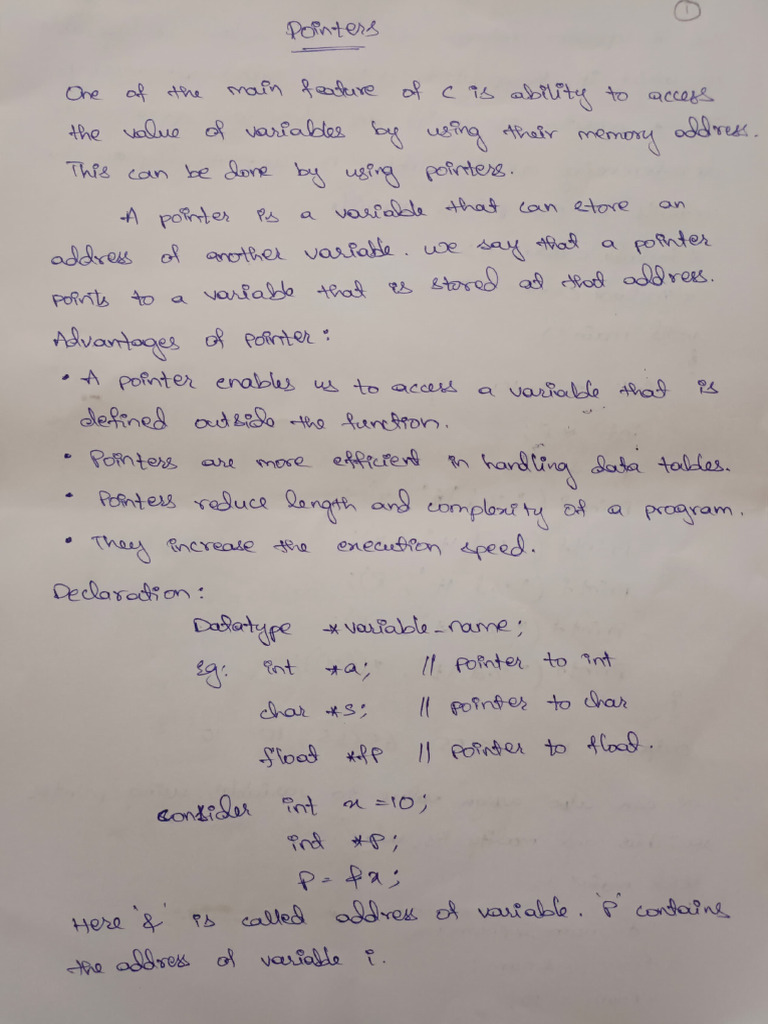 1
Pointers
One of the main feature of C is ability to access
the value of variables by using their memory address.
This can be done by using pointers.
A pointer is a variable that can store an
address of another variable. We say that a pointer
points to a variable that is stored at that address.
Advantages of pointer:
• A pointer enables us to access a variable that is
defined outside the function.
• Pointers are more efficient in handling data tables.
• Pointers reduce length and complexity of a program.
• They increase the execution speed.
Declaration:
Datatype *variable_name;
Eg: int *a; // pointer to int
char *s; // pointer to char
float *fp // pointer to float.
consider int x=10;
int *p;
p = &x;
Here '&' is called address of variable. 'P' contains
the address of variable i.